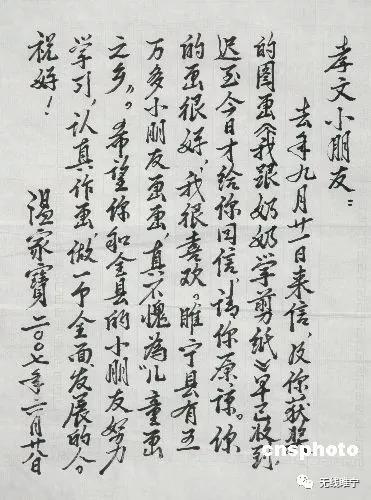 孝文小朋友：
去年九月廿一日来信，及你获奖
的图画《我跟奶奶学剪纸》早已收到，
迟至今日才给你回信，请你原谅。你
的画很好，我很喜欢。睢宁县有五
万多小朋友画画，真不愧為儿童画
之乡。希望你和全县的小朋友努力
学习，认真作画，做一个全面发展的人。
祝好！
温家寶 二〇〇七年二月廿八日
cnsphoto
无线睢宁